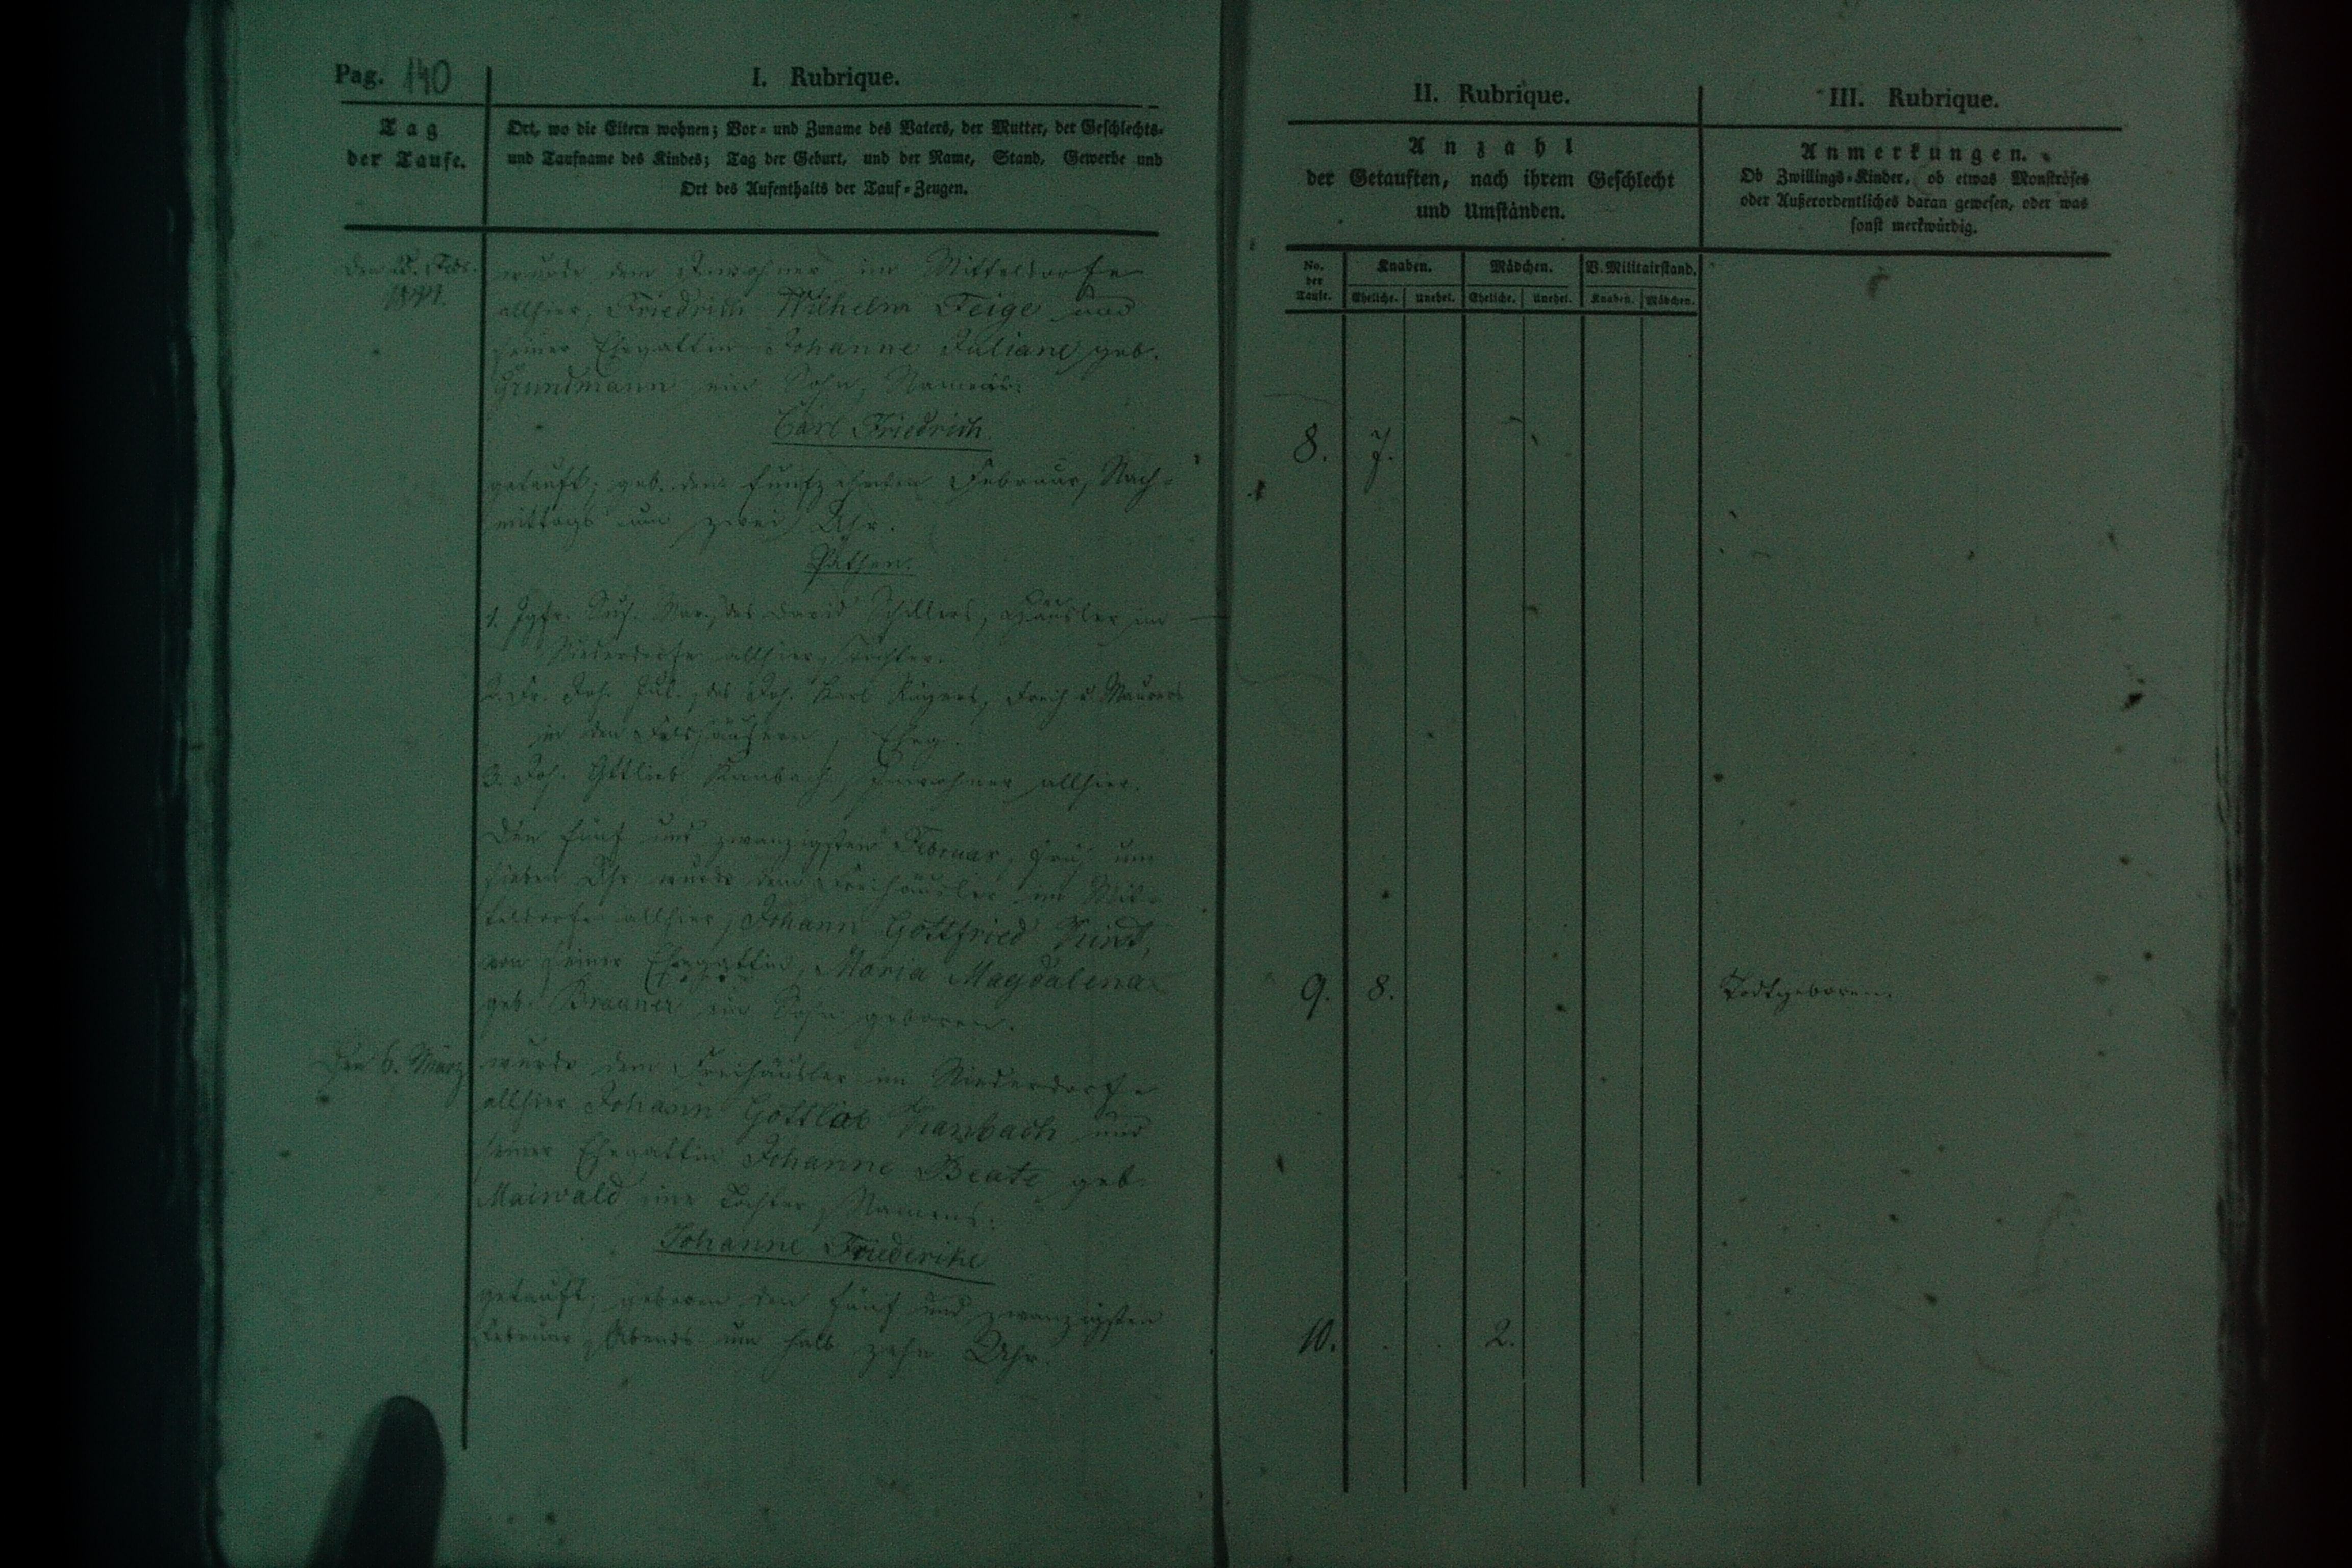 Pag. 140
I. Rubrique.
Tag
der Taufe.
Ort, wo die Eltern wohnen; Vor- und Zuname des Vaters, der Mutter, der Geschlechts-
und Taufname des Kindes; Tag der Geburt, und der Name, Stand, Gewerbe und
Ort des Aufenthalts der Tauf-Zeugen.
wurde dem Inwohner im Mitteldorfe
allhier, Friedrich Wilhelm Feige und
seiner Ehegattin Johanne Juliane geb.
Grundmann ein Sohn, Namens:
Carl Friedrich
getauft; geb. den fünfzehnten Februar, Nach-
mittags um zwei Uhr.
Pathen:
1. Jgfr. Sus. des David Schillers, Häusler im
Niederdorfe allhier, Tochter.
2. Fr. Joh. Jul., des Joh. Karl Maurers
in den Eheg.
3. Joh. Gttlieb Kanbach, Inwohner allhier.
Den fünf und zwanzigsten Februar, früh um
sieben Uhr wurde dem Freihäusler im Mit-
teldorfe allhier, Johann Gottfried
von seiner Ehegattin, Maria Magdalena
geb. Brauner ein Sohn geboren.
Den 6. März
wurde dem Freihäusler im Niederdorfe
allhier Johann Gottlieb Kanbach und
seiner Ehegattin Johanne Beate geb.
Maiwald eine Tochter, Namens:
Johanne Friederike
getauft; geboren den fünf und zwanzigsten
Februar, Abends um halb zehn Uhr.
II. Rubrique.
Anzahl
der Getauften, nach ihrem Geschlecht
und Umständen.
No.
der
Taufe.
Knaben. Mädchen. V. Militairstand.
Eheliche. Unehel. Eheliche. Unehel. Knaben. Mädchen.
8. 7.
9. 8.
10. 2.
III. Rubrique.
Anmerkungen.
Ob Zwillings-Kinder, ob etwas Monströses
oder Außerordentliches daran gewesen, oder was
sonst merkwürdig.
Todtgeboren.